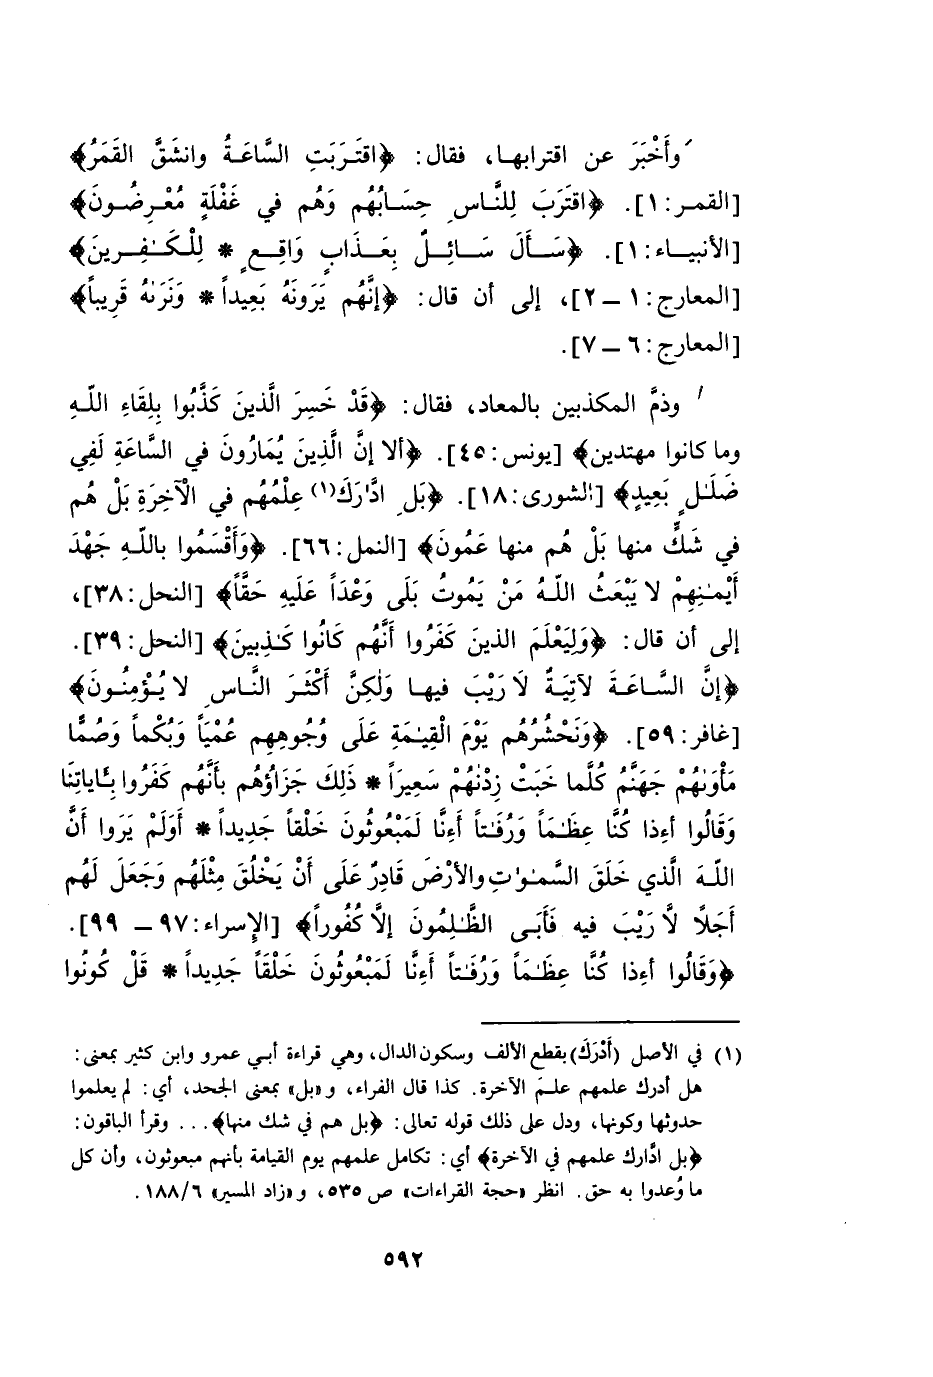 وأَخْبَرَ عن اقترابها، فقال: ﴿اقتَرَبَتِ السَّاعَةُ وانشَقَّ القَمَرُ﴾
[القمر: ١]. ﴿اقتَرَبَ لِلنَّاسِ حِسَابُهُم وَهُم في غَفْلَةٍ مُعْرِضُونَ﴾
[الأنبياء: ١]. ﴿سَأَلَ سَائِلٌ بِعَذَابٍ وَاقِعٍ * لِلْكَـٰفِرينَ﴾
[المعارج: ١ – ٢]، إلى أن قال: ﴿إنَّهُم يَرَونَهُ بَعِيداً * وَنَرَىٰهُ قَرِيباً﴾
[المعارج: ٦ – ٧].
وذمَّ المكذبين بالمعاد، فقال: ﴿قَدْ خَسِرَ الَّذينَ كَذَّبُوا بِلِقَاءِ اللَّهِ
وما كانوا مهتدين﴾ [يونس: ٤٥]. ﴿ألا إنَّ الَّذِينَ يُمَارُونَ في السَّاعَةِ لَفِي
ضَلَـٰلٍ بَعِيدٍ﴾ [الشورى: ١٨]. ﴿بَلِ ادَّٰرَكَ(١) عِلْمُهُم في الْآخِرَةِ بَلْ هُم
في شَكٍّ منها بَلْ هُم منها عَمُونَ﴾ [النمل: ٦٦]. ﴿وَأَقْسَمُوا باللَّهِ جَهْدَ
أَيْمَـٰنِهِمْ لا يَبْعَثُ اللَّهُ مَنْ يَمُوتُ بَلَى وَعْدَاً عَلَيهِ حَقَّاً﴾ [النحل: ٣٨]،
إلى أن قال: ﴿وَلِيَعْلَمَ الذينَ كَفَرُوا أَنَّهُم كَانُوا كَـٰذِبينَ﴾ [النحل: ٣٩].
﴿إنَّ السَّاعَةَ لآتِيَةٌ لا رَيْبَ فيها وَلٰكِنَّ أَكْثَرَ النَّاسِ لا يُؤْمِنُونَ﴾
[غافر: ٥٩]. ﴿وَنَحْشُرُهُم يَوْمَ الْقِيٰمَةِ عَلَى وُجُوهِهِم عُمْيَاً وَبُكْماً وَصُمًّا
مَأْوَىٰهُمْ جَهَنَّمُ كُلَّما خَبَتْ زِدْنٰهُمْ سَعِيرَاً * ذَلِكَ جَزَاؤُهُم بأَنَّهُم كَفَرُوا بِـَٔايَاتِنَا
وَقَالُوا أءِذا كُنَّا عِظَـٰمَاً وَرُفَـٰتاً أءِنَّا لَمَبْعُوثُونَ خَلْقاً جَدِيداً * أَوَلَمْ يَرَوا أَنَّ
اللَّهَ الَّذي خَلَقَ السَّمٰوٰتِ والأرْضَ قَادِرٌ عَلَى أَنْ يَخْلُقَ مِثْلَهُم وَجَعَلَ لَهُم
أَجَلًا لَّا رَيْبَ فيه فَأَبَى الظَّـٰلِمُونَ إلَّا كُفُوراً﴾ [الإسراء: ٩٧ – ٩٩].
﴿وَقَالُوا أءِذا كُنَّا عِظَـٰمَاً وَرُفَـٰتاً أءِنَّا لَمَبْعُوثُونَ خَلْقَاً جَدِيداً * قُلْ كُونُوا
(١) في الأصل (أَدْرَكَ) بقطع الألف وسكون الدال، وهي قراءة أبي عمرو وابن كثير بمعنى:
هل أدرك علمهم علمَ الآخرة. كذا قال الفراء، و«بل» بمعنى الجحد، أي: لم يعلموا
حدوثها وكونها، ودل على ذلك قوله تعالى: ﴿بل هم في شك منها﴾... وقرأ الباقون:
﴿بل ادَّارك علمهم في الآخرة﴾ أي: تكامل علمهم يوم القيامة بأنهم مبعوثون، وأن كل
ما وُعدوا به حق. انظر «حجة القراءات» ص ٥٣٥، و«زاد المسير» ١٨٨/٦.
٥٩٢